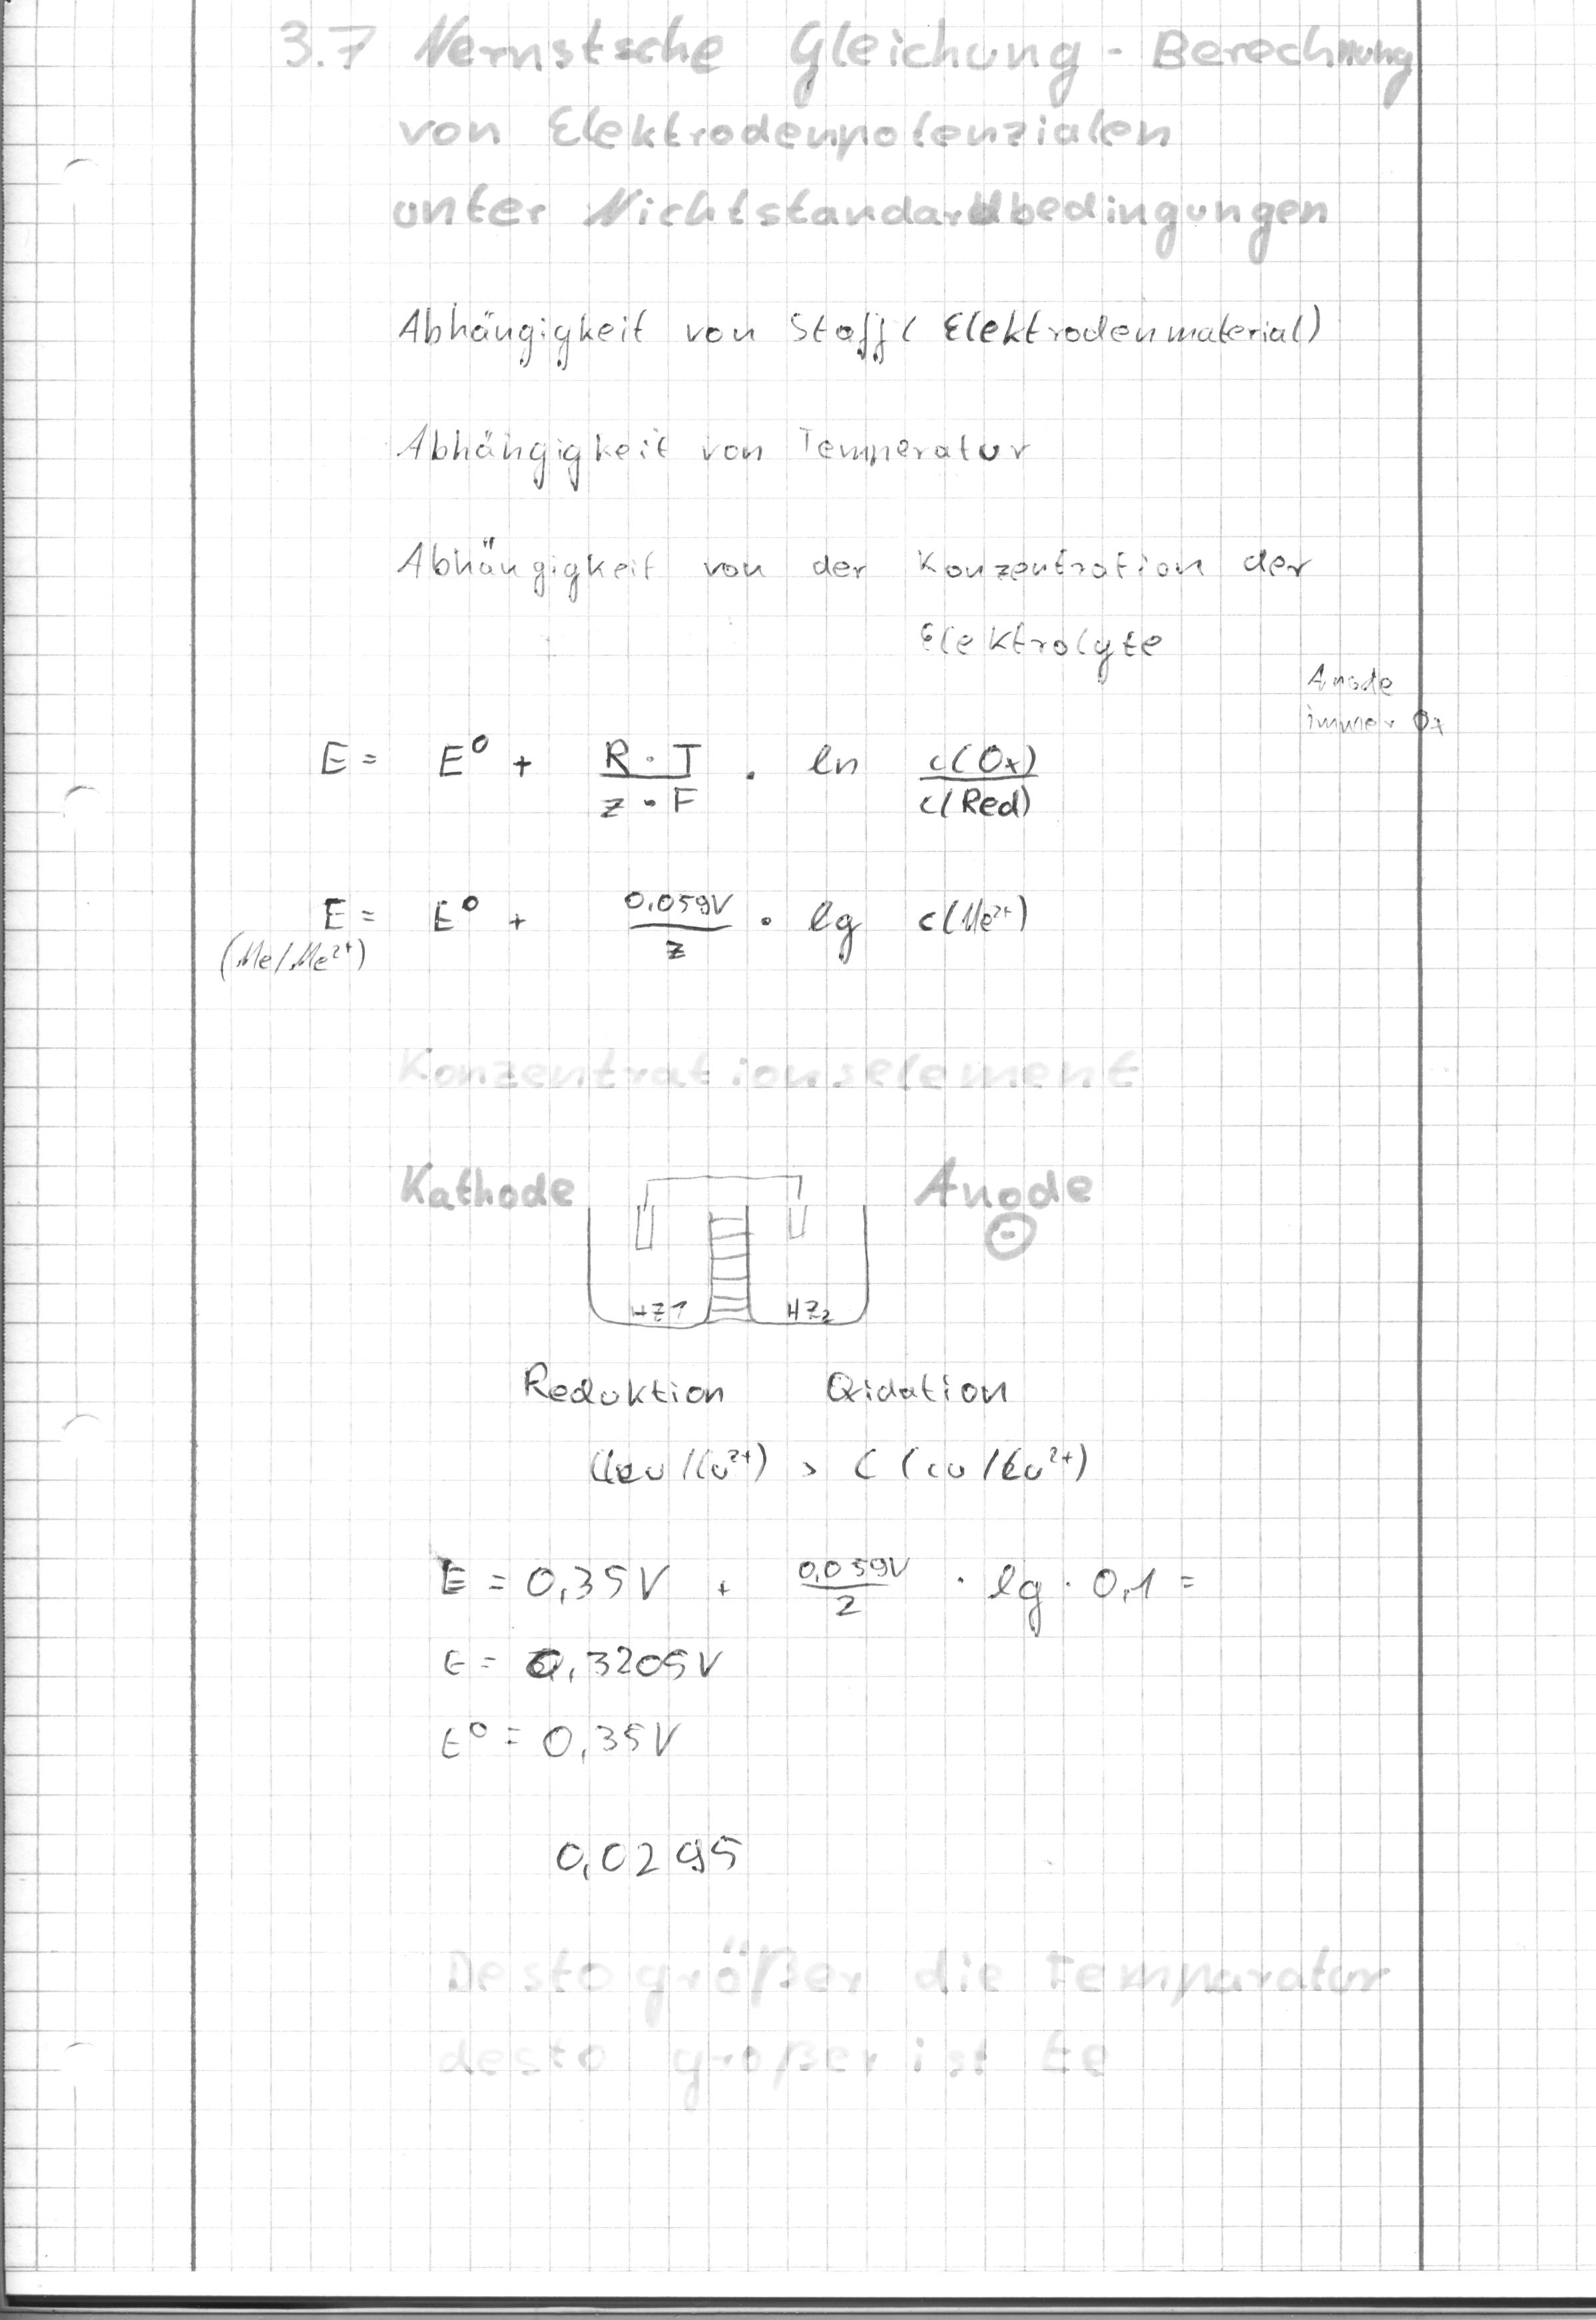 3.7 Nernstsche Gleichung - Berechnung
von Elektrodenpotenzialen
unter Nichtstandardbedingungen
Abhängigkeit von Stoff (Elektrodenmaterial)
Abhängigkeit von Temperatur
Abhängigkeit von der Konzentration der
Elektrolyte
Anode
immer Ox
E = E⁰ + R · T / z · F · ln c(Ox) / c(Red)
E = E⁰ + 0,059V / z · lg c(Me²⁺)
(Me/Me²⁺)
Konzentrationselement
Kathode Anode
⊖
HZ1 HZ2
Reduktion Oxidation
(Cu/Cu²⁺) > C (Cu/Cu²⁺)
E = 0,35V + 0,059V / 2 · lg · 0,1 =
E = 0,3205V
E⁰ = 0,35V
0,0295
Desto größer die Temparatur
desto größer ist